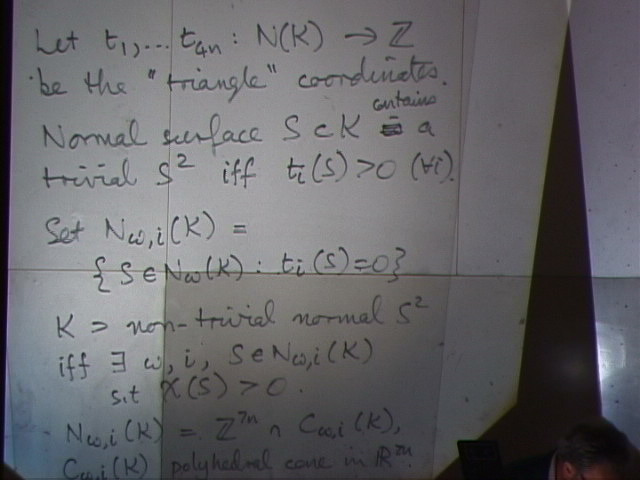 Let t₁,... t₄ₙ : N(K) → ℤ
be the "triangle" coordinates.
contains
Normal surface S ⊂ K a
trivial S² iff tᵢ(S) > 0 (∀i).
Set N_{ω,i}(K) =
{S ∈ N_ω(K) : tᵢ(S) = 0}
K ⊃ non-trivial normal S²
iff ∃ ω, i, S ∈ N_{ω,i}(K)
s.t χ(S) > 0.
N_{ω,i}(K) = ℤ⁷ⁿ ∩ C_{ω,i}(K),
C_{ω,i}(K) polyhedral cone in ℝ⁷ⁿ.